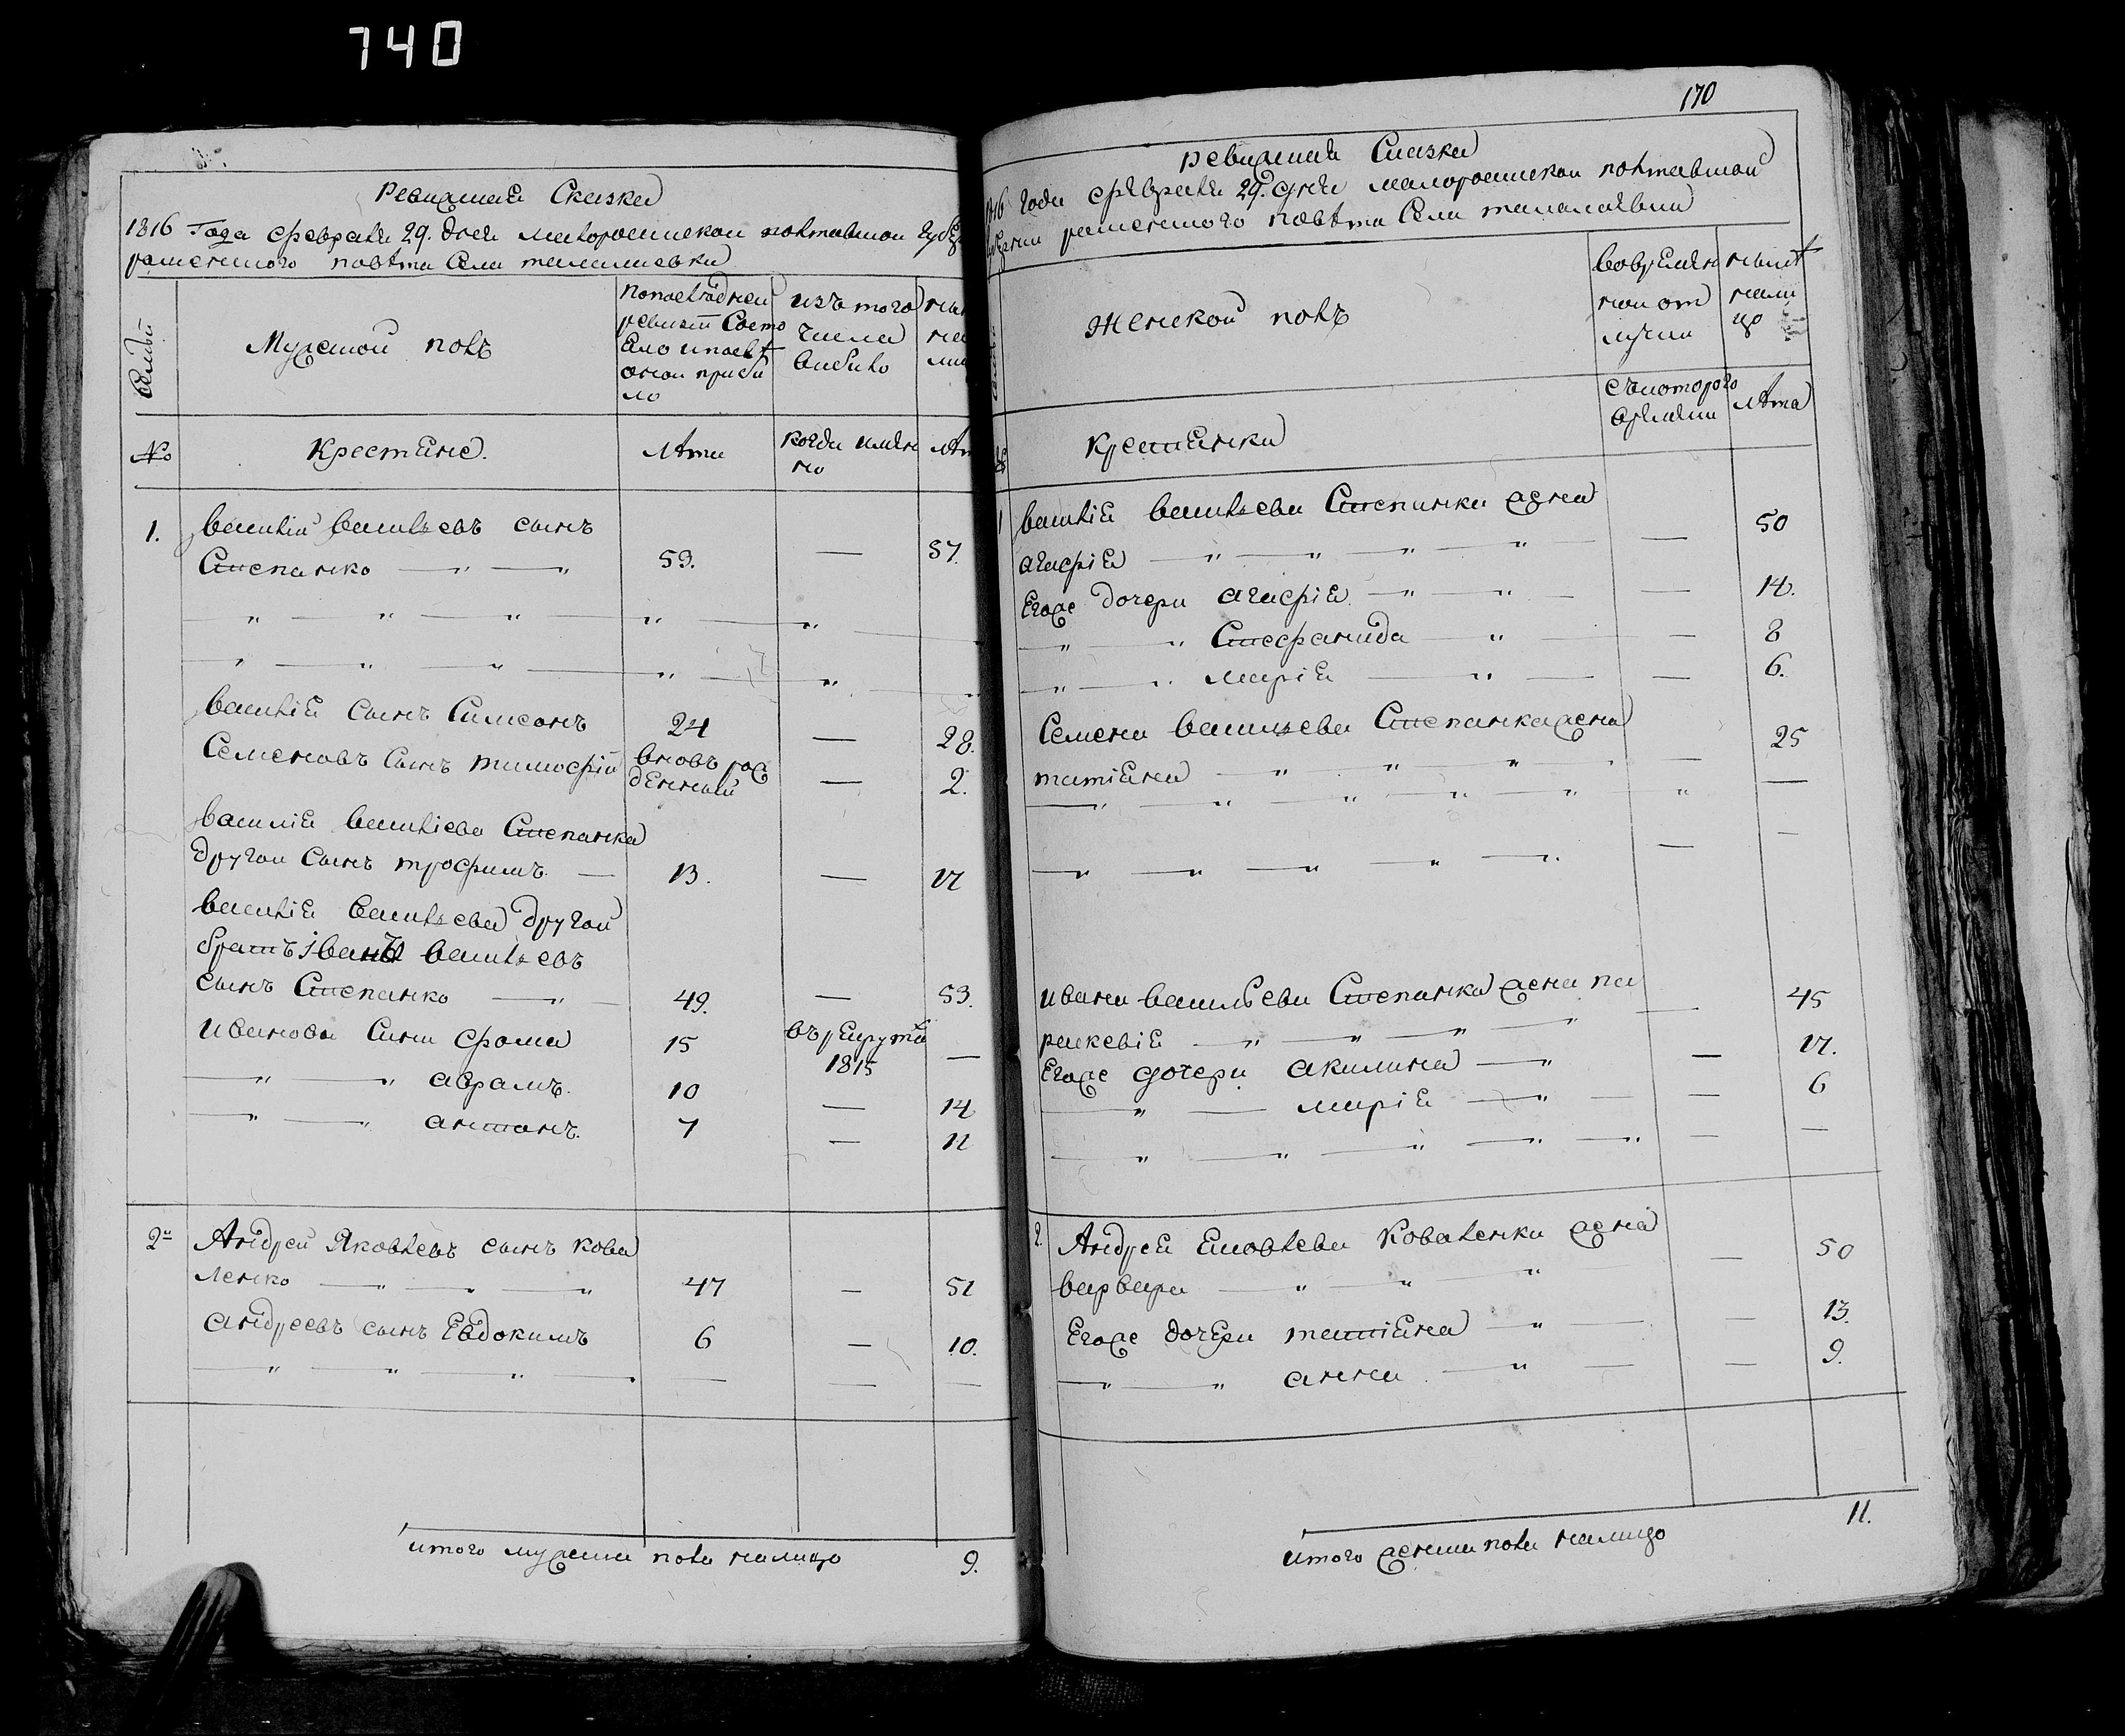 740
Ревизская Сказка
1816 Года февраля 29. дня малороссийской полтавской губер
роменского повѣта Села талалаевки
Семьи
Мужеской полъ
Попоследней
ревизіи Состо
яло ипосл
оной прибы
ло
изъ того
числа
выбыло
№
Крестяне.
Лѣта
Когда имян
но
Лѣт
1.
василій васильевъ сынъ
Степанко
53.
57.
василія сынъ Симеонъ
24
28.
Семеновъ Сынъ тимофій
вновъ рож
денный
2.
василія василіева Степанка
другой сынъ трофимъ
13.
17
василія васильева другой
братъ іванъ васильевъ
сынъ Степанко
49.
53.
иванова Сини фома
15
въ рекруты
1815
аврамъ.
10
14
антонъ.
7
11
2й
Андрей Яковлевъ сынъ кова
ленко
47
51
андреевъ сынъ Евдокимъ
6
10.
итого мужеска пола налицо
9.
170
ревизская Сказка
1816 года февраля 29. дня малороссийской полтавской
губернии роменского повѣта Села талалаевки
Женской полъ
вовремян
ной от
лучки
нынѣ
нали
цо
Крестянки
съкоторого
времяни
лѣта
1
василія васильева Степанка жена
агафія
50
Егоже дочери агафія
14.
Стефанида
8
марія
6.
Семена васильева Степанка жена
татіяна
25
ивана васильева Степанка жена па
раскевія
45
Егоже дочери акилина
17.
марія
6
2.
Андрея Яковлева Коваленка жена
варвара
50
Егоже дочери татіяна
13.
анна
9.
итого женска пола налицо
11.